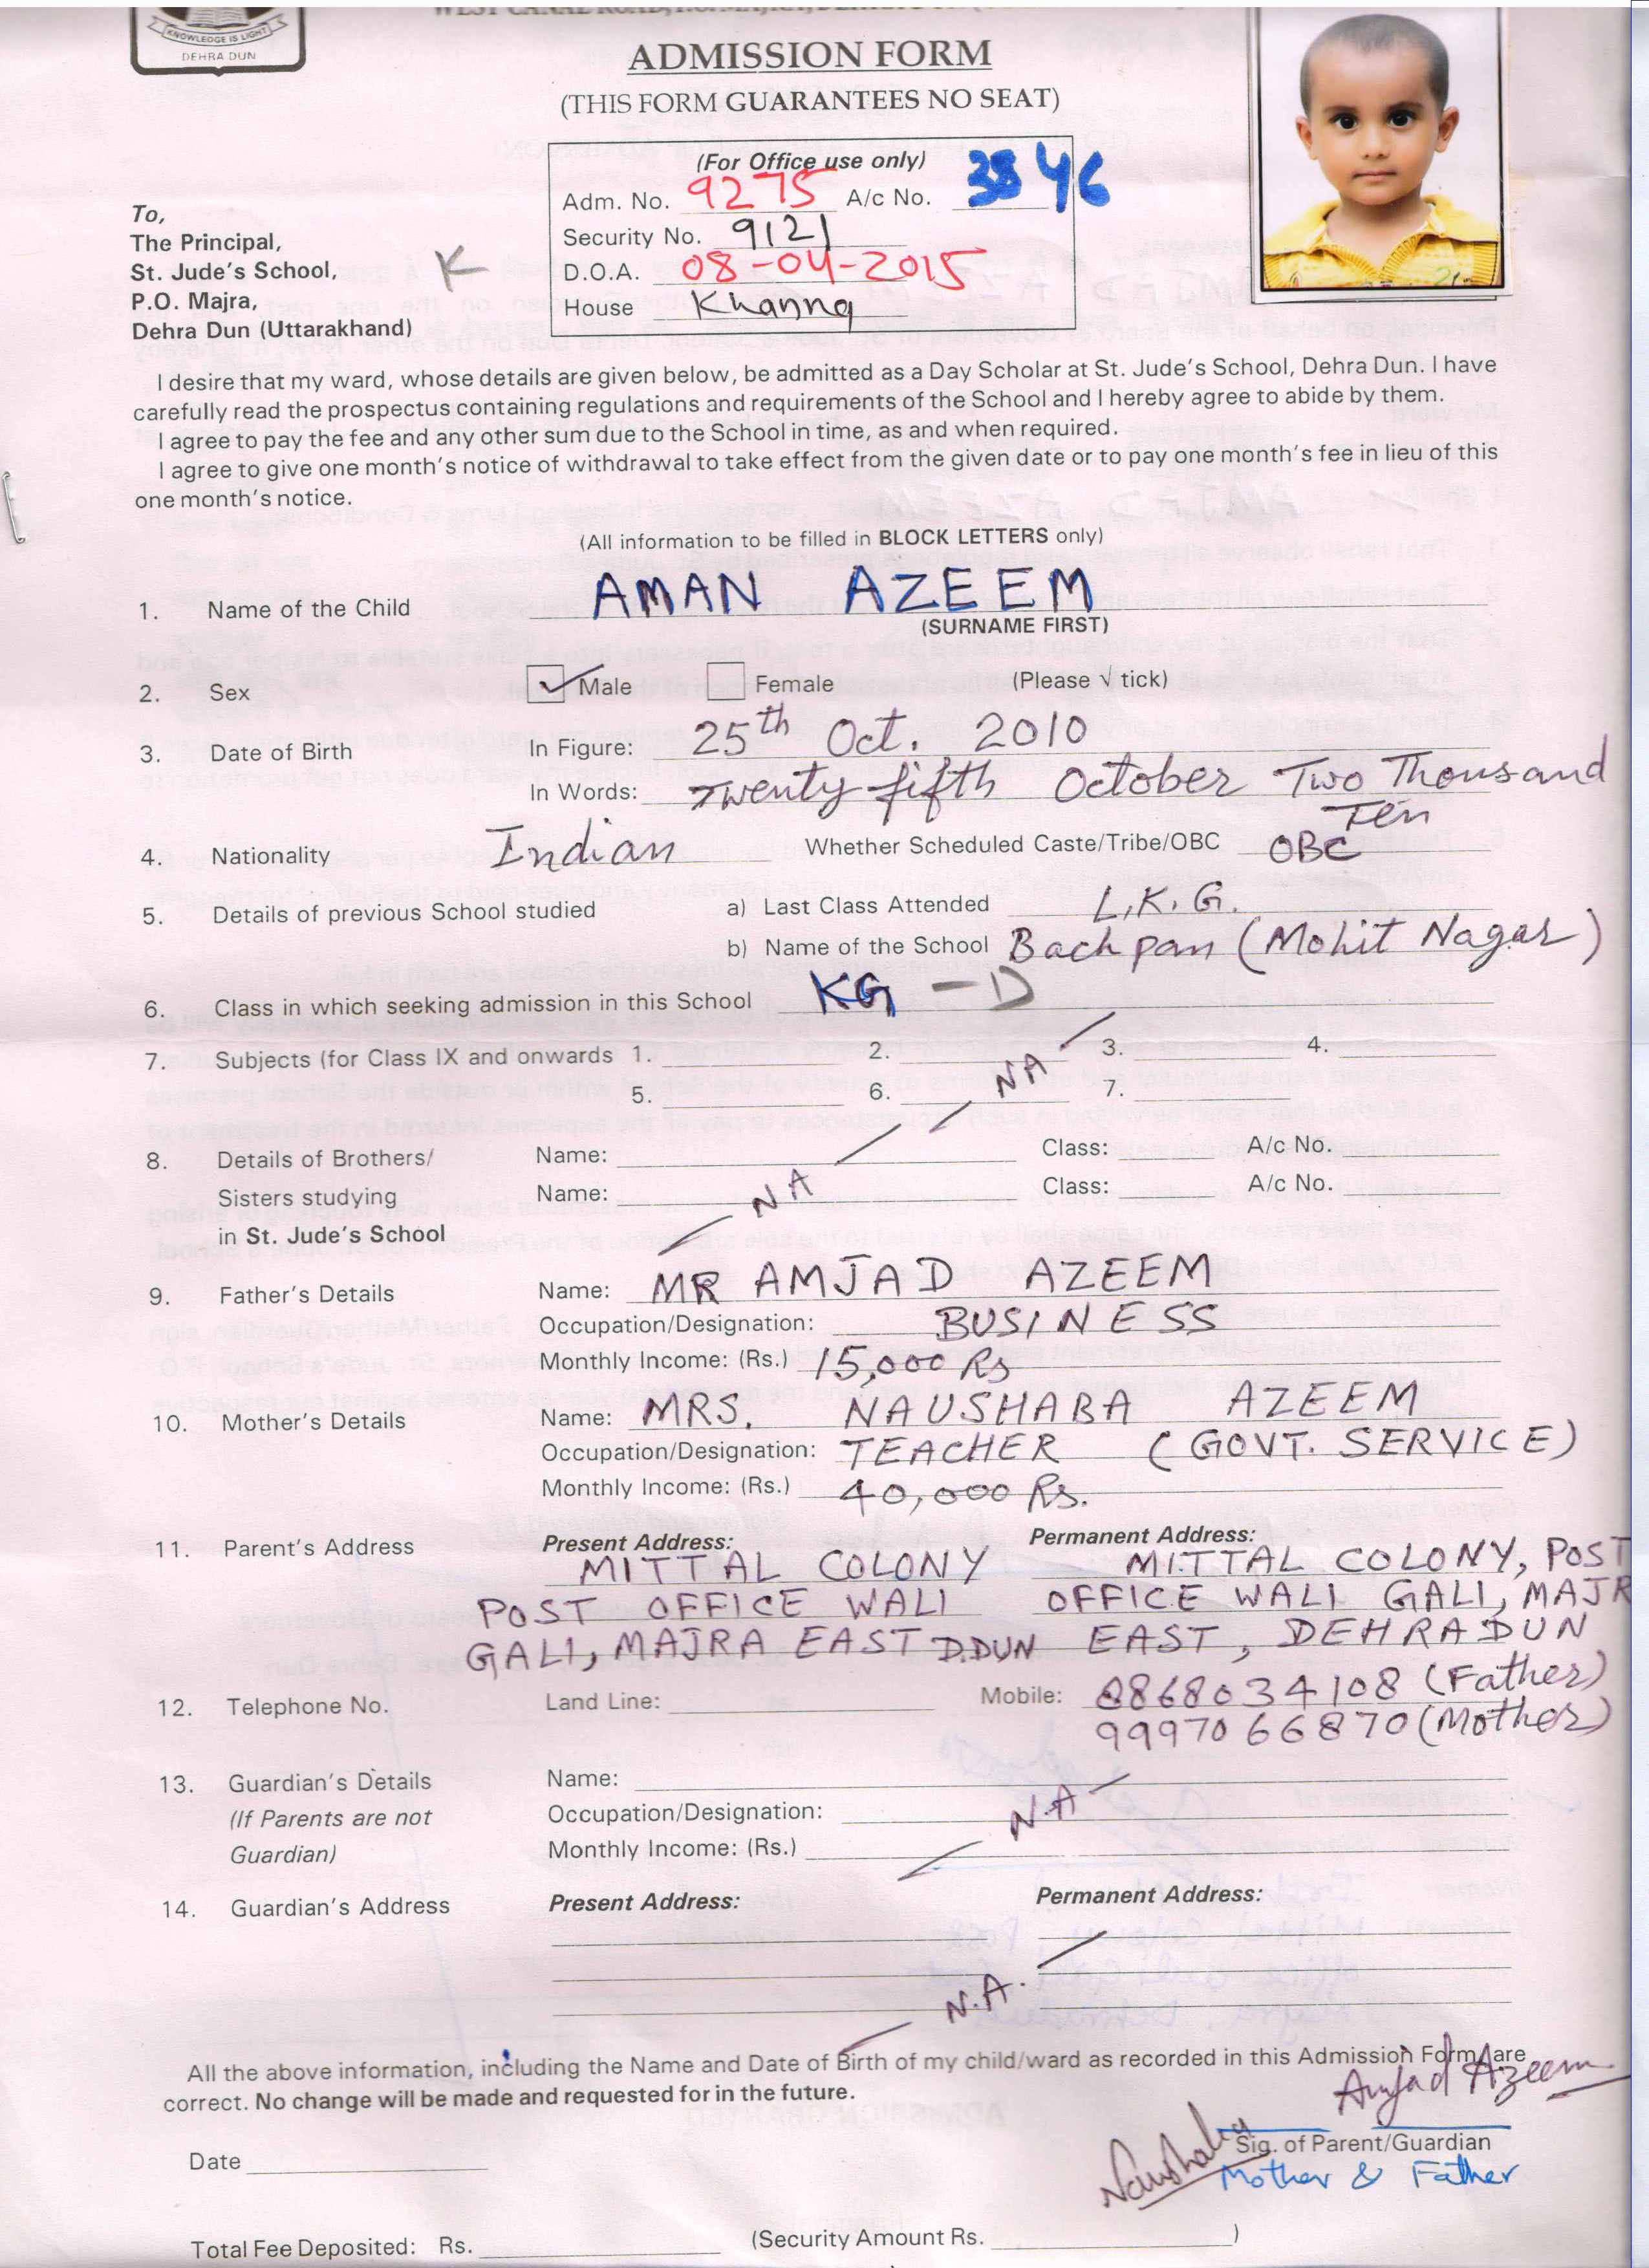 KNOWLEDGE IS LIGHT
DEHRA DUN
ADMISSION FORM
(THIS FORM GUARANTEES NO SEAT)
(For Office use only)
Adm. No. 9275 A/c No. 3846
Security No. 9121
D.O.A. 08-04-2015
House Khanna
To,
The Principal,
St. Jude's School, K
P.O. Majra,
Dehra Dun (Uttarakhand)
I desire that my ward, whose details are given below, be admitted as a Day Scholar at St. Jude's School, Dehra Dun. I have
carefully read the prospectus containing regulations and requirements of the School and I hereby agree to abide by them.
I agree to pay the fee and any other sum due to the School in time, as and when required.
I agree to give one month's notice of withdrawal to take effect from the given date or to pay one month's fee in lieu of this
one month's notice.
(All information to be filled in BLOCK LETTERS only)
1. Name of the Child AMAN AZEEM
(SURNAME FIRST)
2. Sex ✓ Male Female (Please √ tick)
3. Date of Birth In Figure: 25th Oct. 2010
In Words: Twenty fifth October Two Thousand
Ten
4. Nationality Indian Whether Scheduled Caste/Tribe/OBC OBC
5. Details of previous School studied a) Last Class Attended L.K.G.
b) Name of the School Bachpan (Mohit Nagar)
6. Class in which seeking admission in this School KG - D
7. Subjects (for Class IX and onwards 1. 2. 3. 4.
5. 6. NA 7.
8. Details of Brothers/ Name: Class: A/c No.
Sisters studying Name: NA Class: A/c No.
in St. Jude's School
9. Father's Details Name: MR AMJAD AZEEM
Occupation/Designation: BUSINESS
Monthly Income: (Rs.) 15,000 Rs
10. Mother's Details Name: MRS. NAUSHABA AZEEM
Occupation/Designation: TEACHER (GOVT. SERVICE)
Monthly Income: (Rs.) 40,000 Rs.
11. Parent's Address Present Address: Permanent Address:
MITTAL COLONY MITTAL COLONY, POST
POST OFFICE WALI OFFICE WALI GALI, MAJR
GALI, MAJRA EAST D.DUN EAST, DEHRADUN
12. Telephone No. Land Line: Mobile: 8868034108 (Father)
9997066870 (Mother)
13. Guardian's Details Name:
(If Parents are not Occupation/Designation: N.A
Guardian) Monthly Income: (Rs.)
14. Guardian's Address Present Address: Permanent Address:
N.A.
All the above information, including the Name and Date of Birth of my child/ward as recorded in this Admission Form are
correct. No change will be made and requested for in the future.
Amjad Azeem
Naushaba Sig. of Parent/Guardian
Mother & Father
Date
Total Fee Deposited: Rs. (Security Amount Rs. )